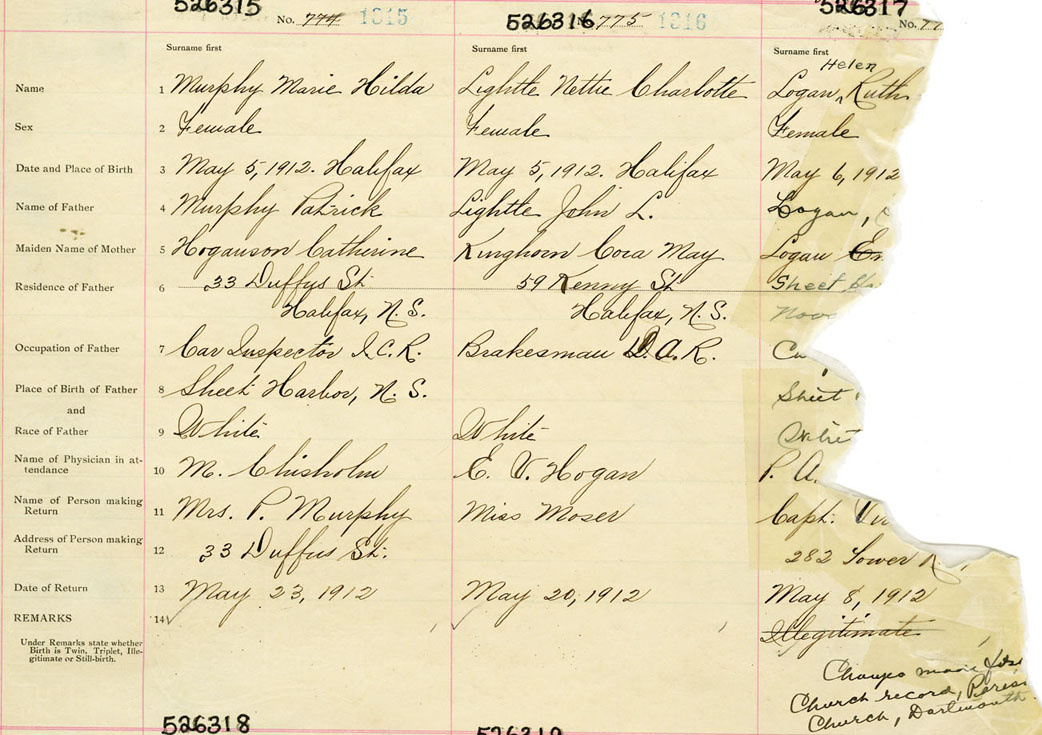 526315 526316 526317
No. 774 1315 775 1316 No. 77
Surname first Surname first Surname first
Helen
Name 1 Murphy Marie Hilda Lightle Nettie Charlotte Logan, Ruth
Sex 2 Female Female Female
Date and Place of Birth 3 May 5, 1912. Halifax May 5, 1912. Halifax May 6, 1912
Name of Father 4 Murphy Patrick Lightle John L. Logan,
Maiden Name of Mother 5 Hoganson Catherine Kinghorn Cora May Logan
Residence of Father 6 33 Duffus St 59 Kenny St Sheet
Halifax, N. S. Halifax, N. S.
Occupation of Father 7 Car Inspector I.C.R. Brakesman D.A.R.
Place of Birth of Father 8 Sheet Harbor, N. S. Sheet
and
Race of Father 9 White White
Name of Physician in at-
tendance 10 M. Chisholm E. V. Hogan P. A.
Name of Person making
Return 11 Mrs. P. Murphy Miss Moser Capt.
Address of Person making
Return 12 33 Duffus St. 282
Date of Return 13 May 23, 1912 May 20, 1912 May 8, 1912
REMARKS 14 Illegitimate
Under Remarks state whether
Birth is Twin, Triplet, Ille-
gitimate or Still-birth.
Church record,
Church, Dartmouth
526318